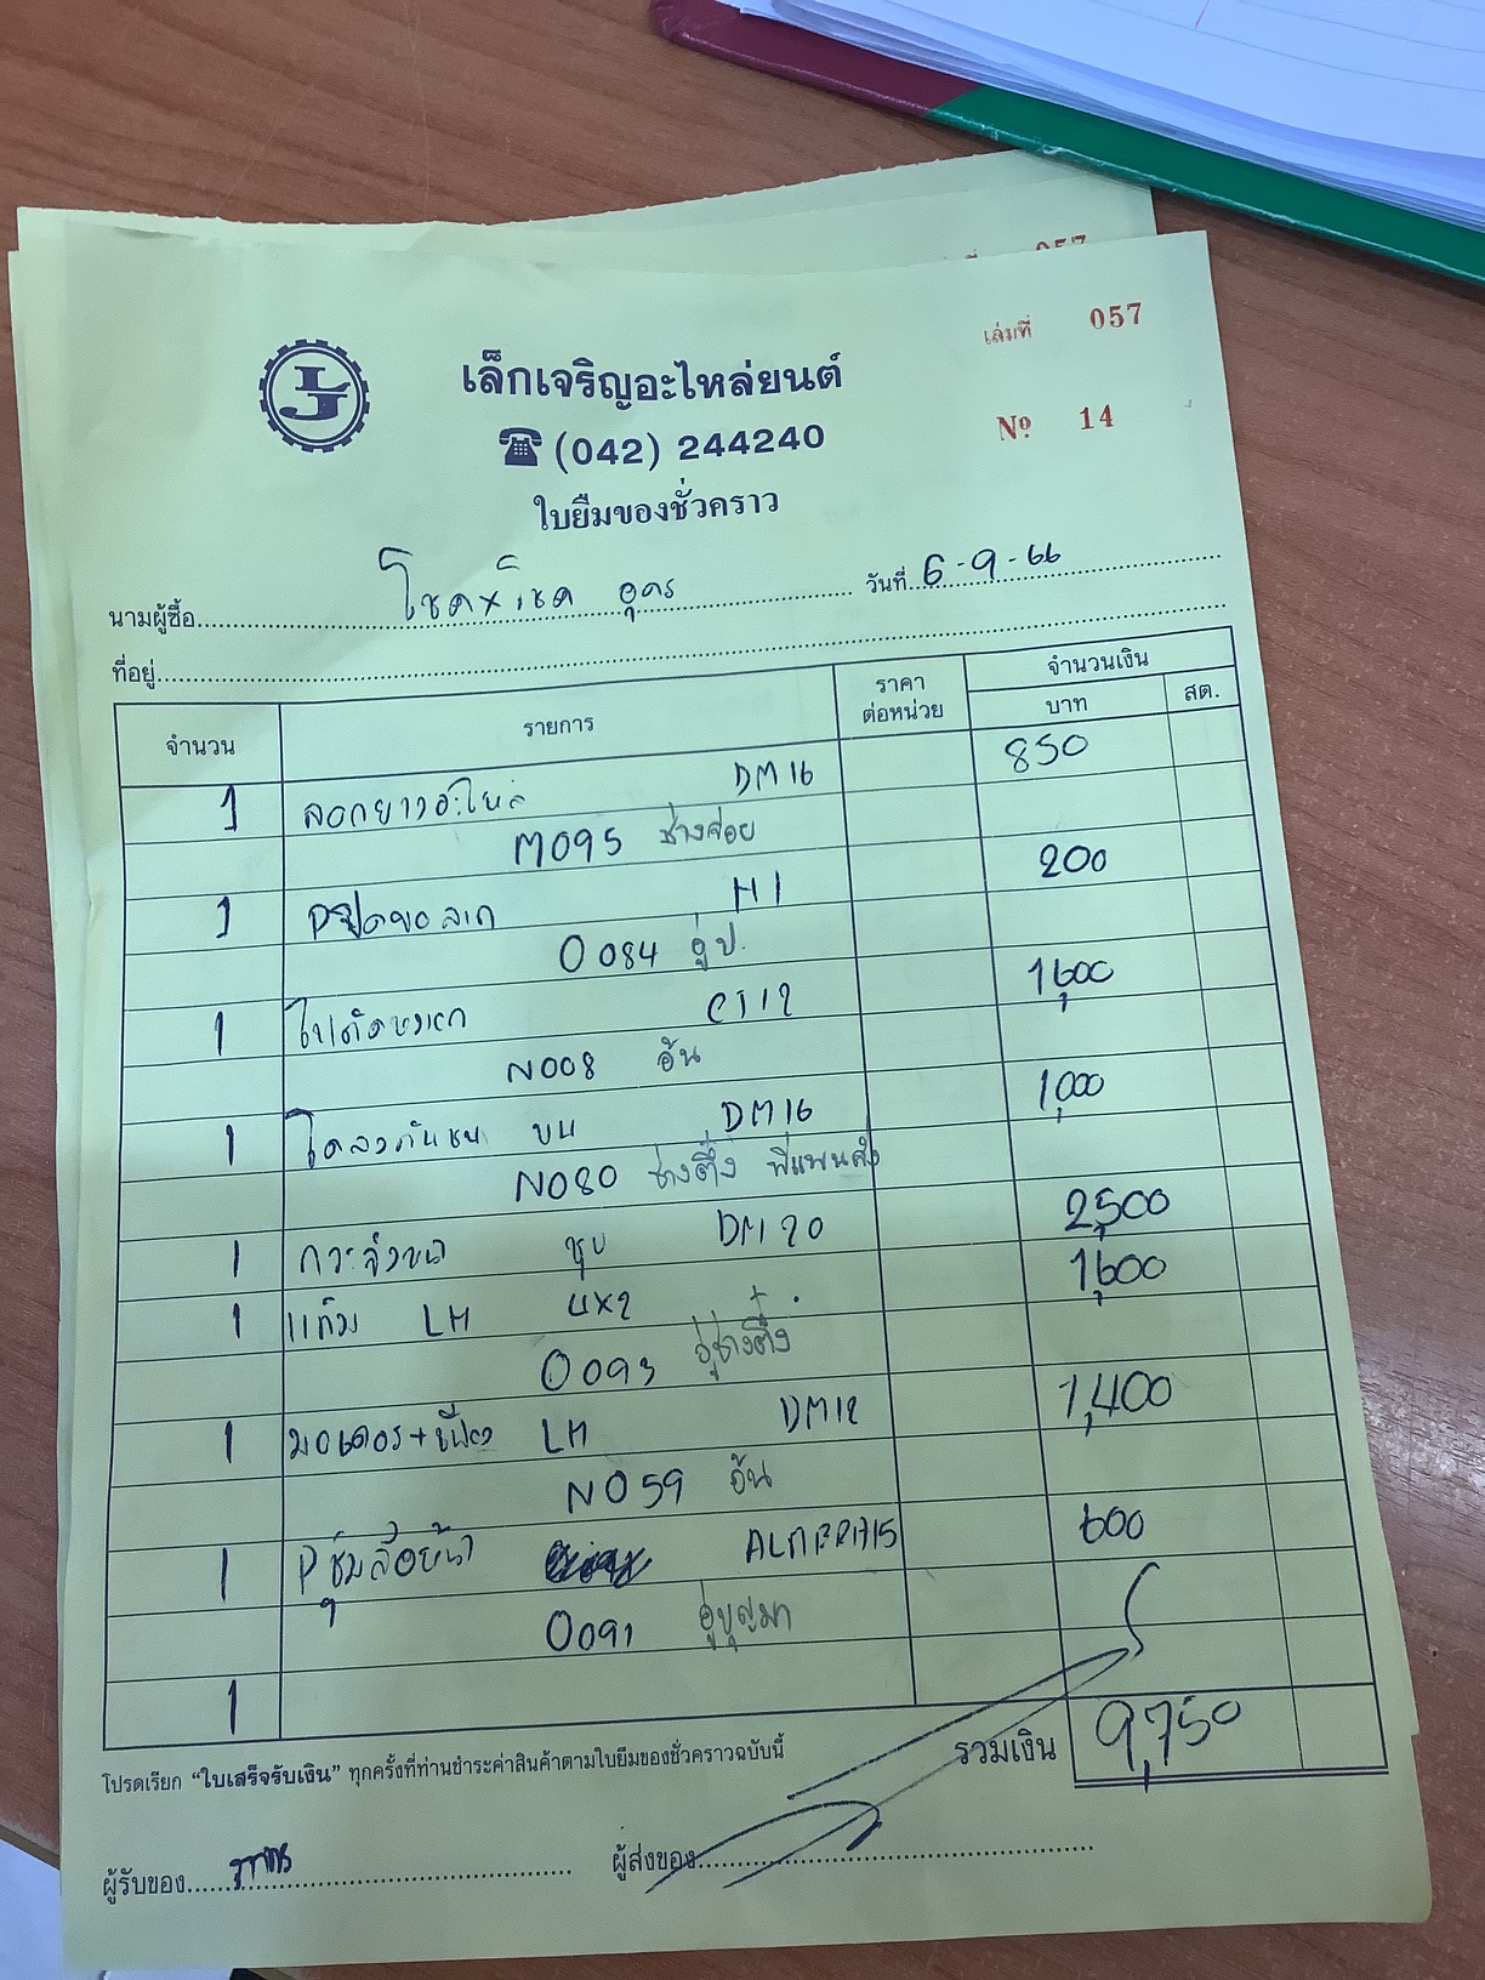 057
เล่มที่ 057
LJ
เล็กเจริญอะไหล่ยนต์
Nº 14
☎ (042) 244240
ใบยืมของชั่วคราว
นามผู้ซื้อ โชควิเชค อุดร วันที่ 6-9-66
ที่อยู่
จำนวน รายการ ราคาต่อหน่วย จำนวนเงิน
บาท สต.
1 ลอกยางอะไหล่ DM16 850
M095 ช่างจ่อย
1 H1 200
0084 อู่ป.
1 1,600
N008 อ้น
1 บน DM16 1,000
N080 ช่างตึ๋ง
1 ชุบ DM20 2,500
1 แก้ม LH UX2 1,600
0093 อู่ช่างตึ๋ง
1 LH DM12 1,400
N059 อ้น
1 600
0091 อู่บุญมา
1
รวมเงิน 9,750
โปรดเรียก “ใบเสร็จรับเงิน” ทุกครั้งที่ท่านชำระค่าสินค้าตามใบยืมของชั่วคราวฉบับนี้
ผู้รับของ ผู้ส่งของ